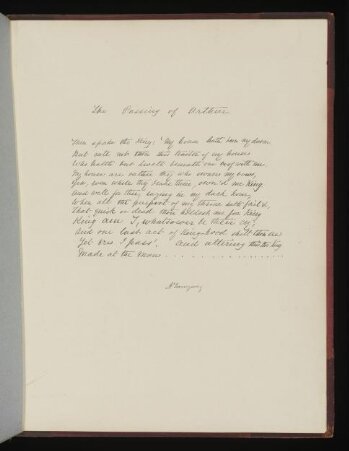 The Passing of Arthur
Then spake the King: 'My house hath been my doom
But call not thou this traitor of my house
Who hath but dwelt beneath one roof with me
My house are rather they who sware my vows,
Yea, even while they brake them, own'd me King
And well for thee, saying in my dark hour,
When all the purport of my throne hath fail'd,
That quick or dead thou holdest me for King
King am I, whatsoever be their cry;
And one last act of Kinghood shalt thou see
Yet ere I pass'. And uttering this the King
Made at the man . . . . . . . . . . . . . . . .
A Tennyson